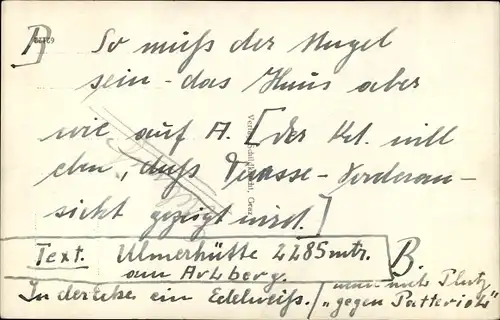 A
So muß der Kugel
sein - das Haus aber
wie auf A. [der Kd. will
eben, daß Terrasse - Vorderan-
sicht gezeigt wird.]
Text. Ulmerhütte 2285 mtr.
am Arlberg.
B.
In der Ecke ein Edelweiß.
"gegen Patteriol"